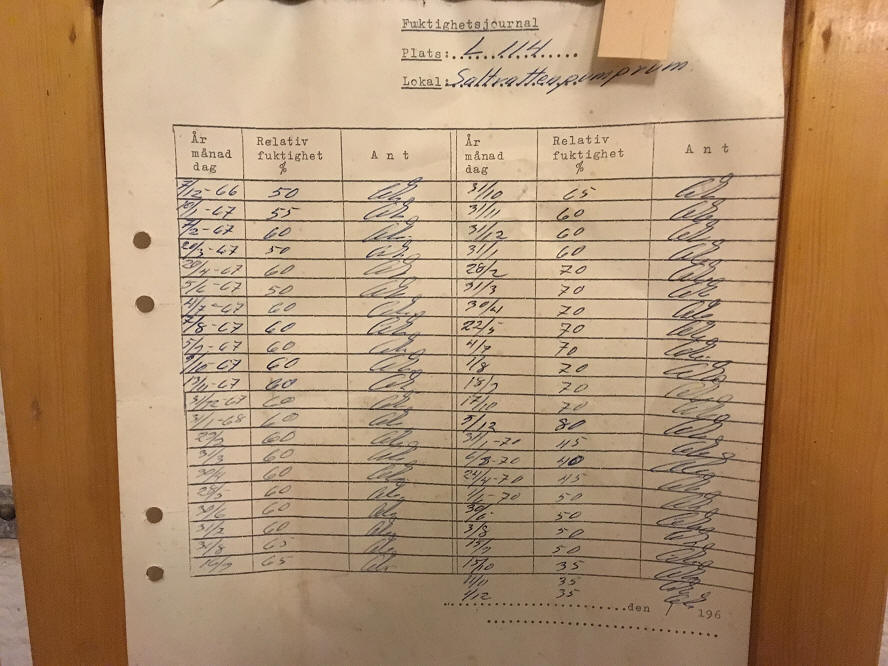 Fuktighetsjournal
Plats: L 114
Lokal: Saltvattenpumprum
År månad dag Relativ fuktighet % Ant År månad dag Relativ fuktighet % Ant
7/12-66 50 31/10 65
10/1-67 55 31/11 60
7/2-67 60 31/12 60
20/3-67 50 31/1 60
20/4-67 60 28/2 70
5/6-67 50 31/3 70
4/7-67 60 30/4 70
7/8-67 60 22/5 70
5/9-67 60 4/7 70
9/10-67 60 1/8 70
60 18/9 70
31/12-67 60 17/10 70
31/1-68 60 5/12 80
29/2 60 31/1-70 45
31/3 60 40
30/4 60 24/4-70 45
28/5 60 1/6-70 50
30/6 60 30/6 50
31/7 60 3/8 50
31/8 65 50
16/9 65 15/10 35
11/11 35
1/12 35
den 196